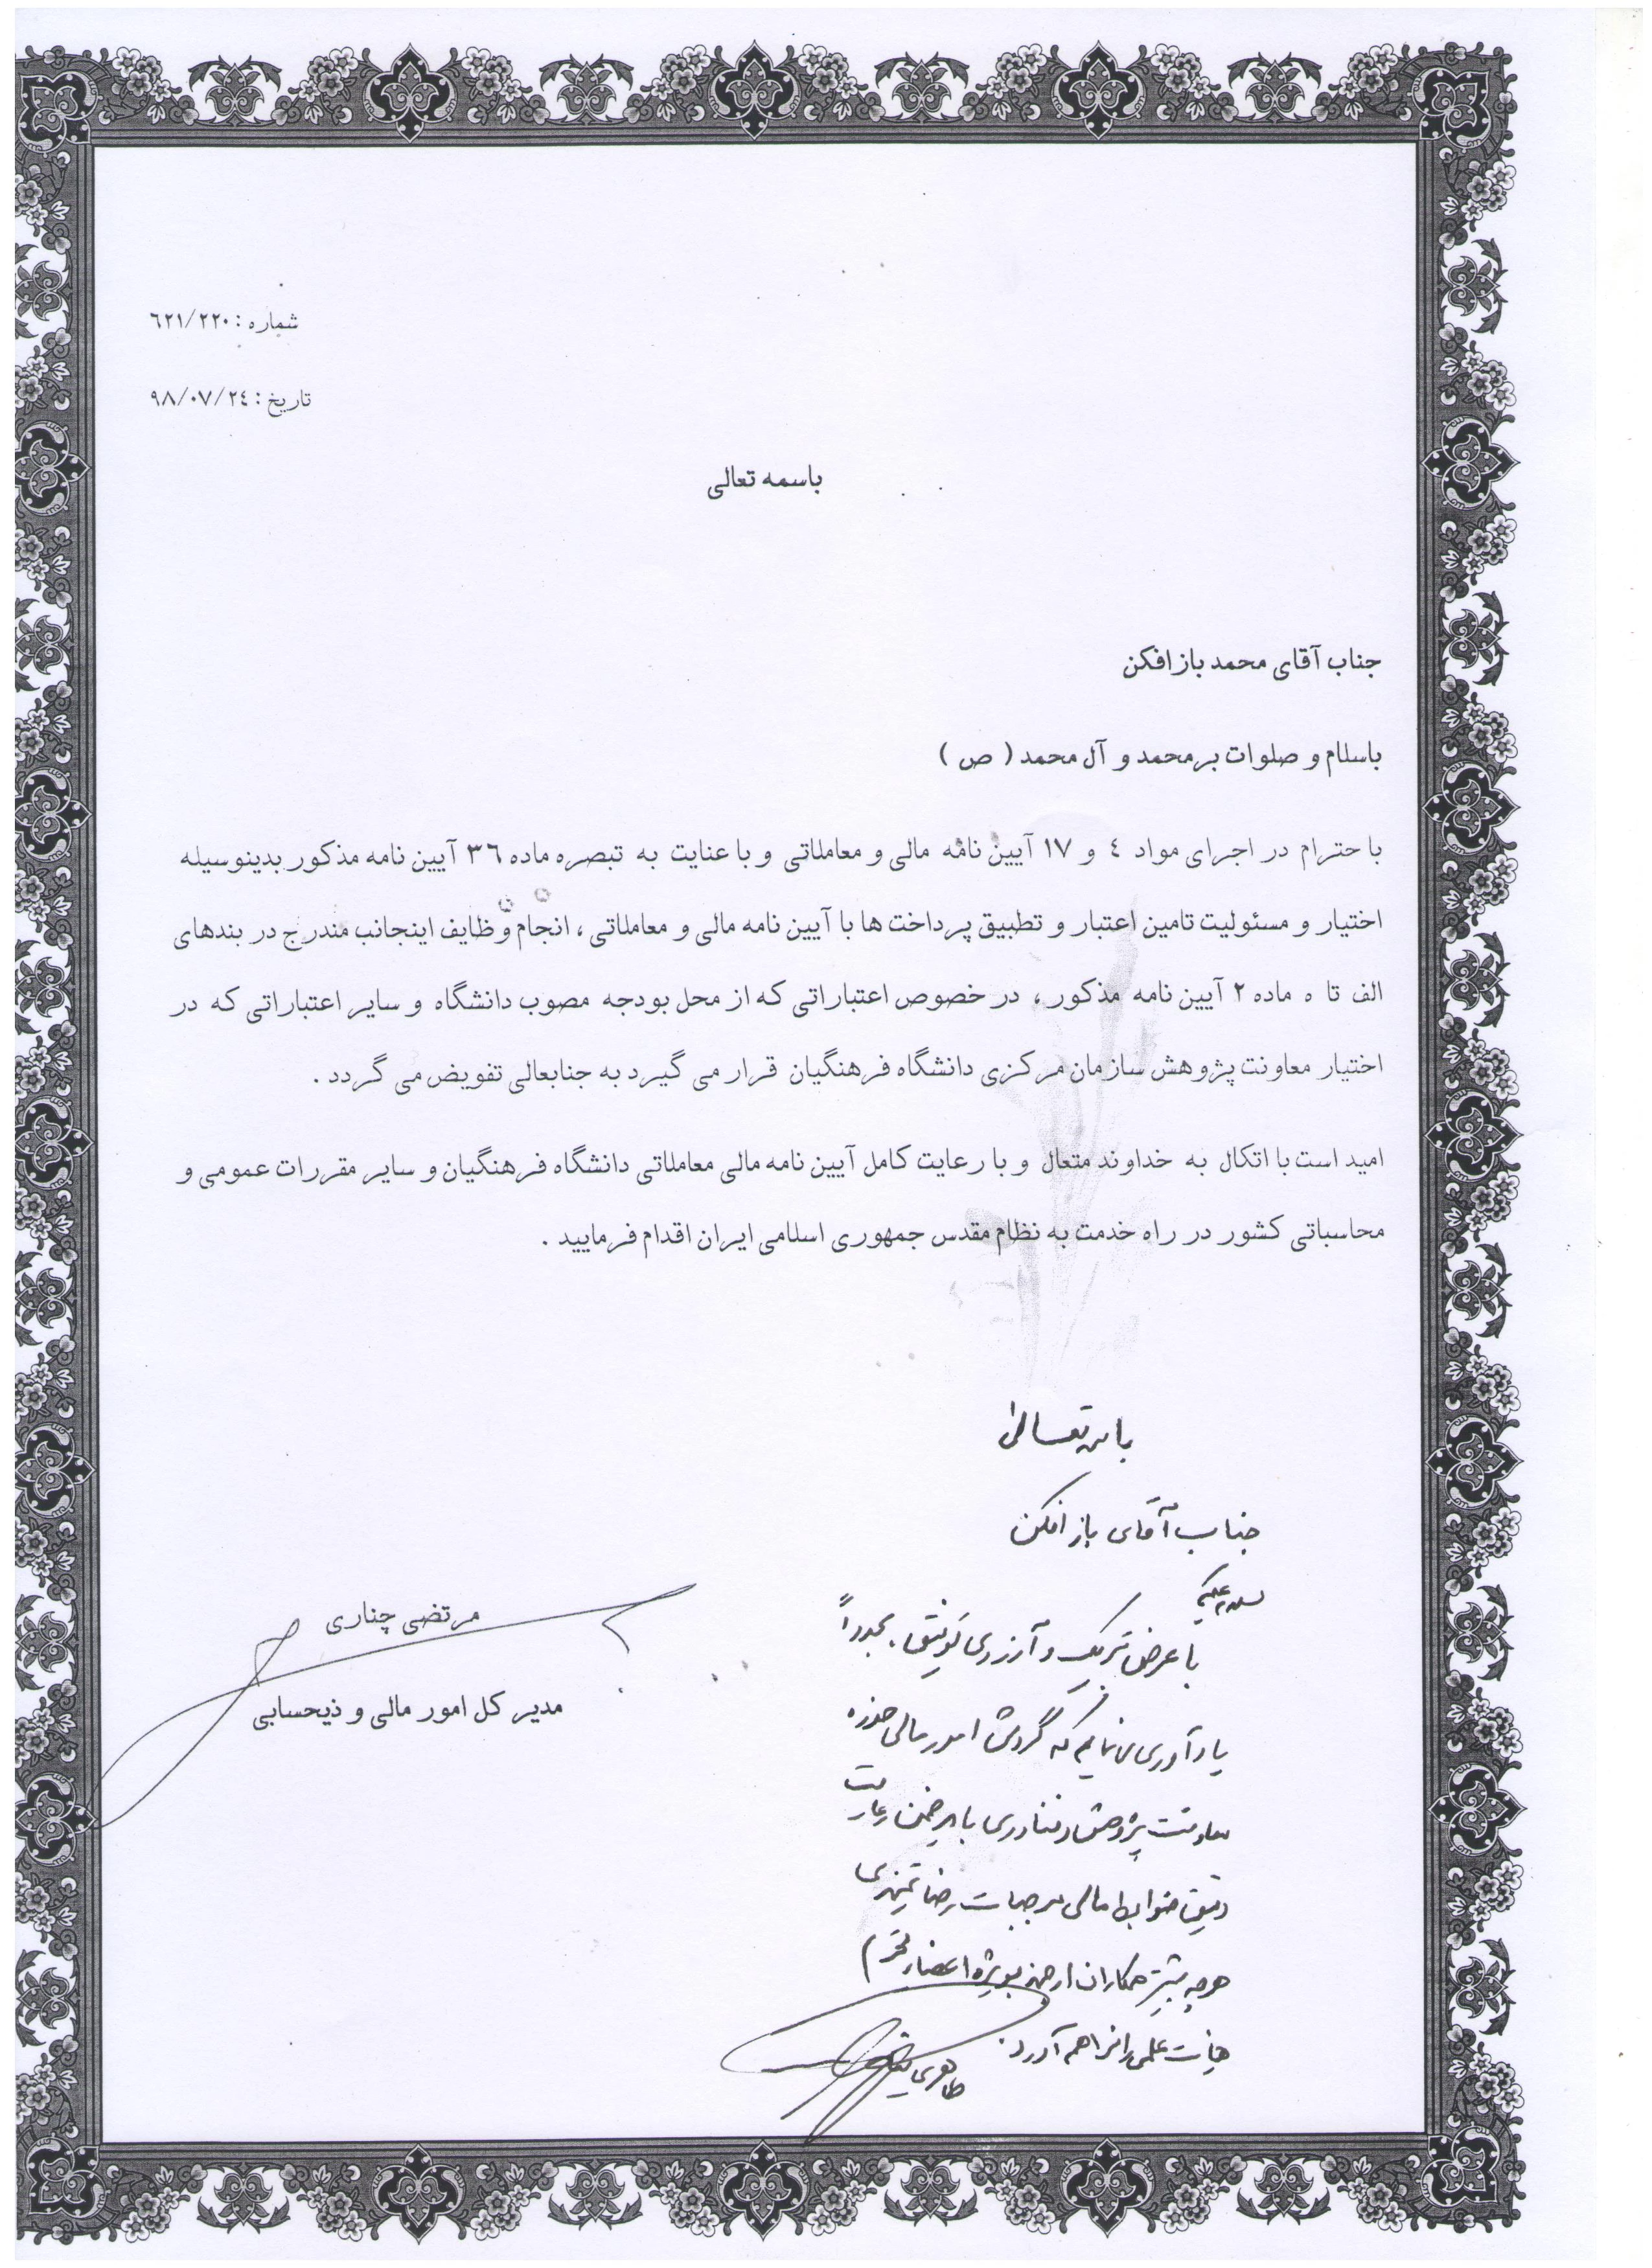 شماره : ٦٢١/٢٢٠
تاریخ : ٩٨/٠٧/٢٤
باسمه تعالی
جناب آقای محمد باز افکن
باسلام و صلوات بر محمد و آل محمد ( ص )
با حترام در اجرای مواد ٤ و ١٧ آیین نامه مالی و معاملاتی و با عنایت به تبصره ماده ٣٦ آیین نامه مذکور بدینوسیله
اختیار و مسئولیت تامین اعتبار و تطبیق پرداخت ها با آیین نامه مالی و معاملاتی ، انجام وظایف اینجانب مندرج در بندهای
الف تا ه ماده ٢ آیین نامه مذکور ، در خصوص اعتباراتی که از محل بودجه مصوب دانشگاه و سایر اعتباراتی که در
اختیار معاونت پژوهش سازمان مرکزی دانشگاه فرهنگیان قرار می گیرد به جنابعالی تفویض می گردد .
امید است با اتکال به خداوند متعال و با رعایت کامل آیین نامه مالی معاملاتی دانشگاه فرهنگیان و سایر مقررات عمومی و
محاسباتی کشور در راه خدمت به نظام مقدس جمهوری اسلامی ایران اقدام فرمایید .
مرتضی چناری
مدیر کل امور مالی و ذیحسابی
باسمه تعالی
جناب آقای باز افکن
سلام علیکم
با عرض تبریک و آرزوی توفیق، مجدداً
یادآوری می نمایم که گردش امور مالی حوزه
معاونت پژوهش و فناوری باید ضمن رعایت
دقیق ضوابط مالی موجبات رضایتمندی
هرچه بیشتر همکاران ارجمند بویژه اعضاء محترم
هیات علمی را فراهم آورد.